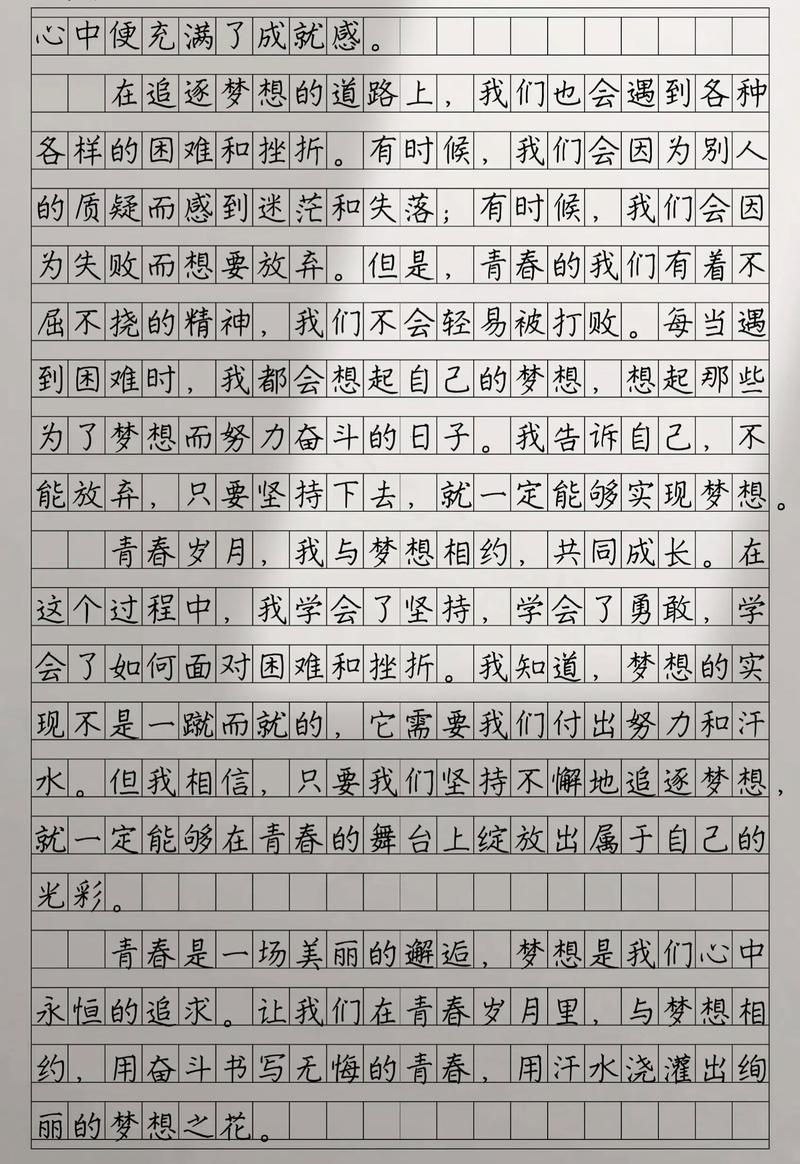 心中便充满了成就感。
在追逐梦想的道路上，我们也会遇到各种
各样的困难和挫折。有时候，我们会因为别人
的质疑而感到迷茫和失落；有时候，我们会因
为失败而想要放弃。但是，青春的我们有着不
屈不挠的精神，我们不会轻易被打败。每当遇
到困难时，我都会想起自己的梦想，想起那些
为了梦想而努力奋斗的日子。我告诉自己，不
能放弃，只要坚持下去，就一定能够实现梦想。
青春岁月，我与梦想相约，共同成长。在
这个过程中，我学会了坚持，学会了勇敢，学
会了如何面对困难和挫折。我知道，梦想的实
现不是一蹴而就的，它需要我们付出努力和汗
水。但我相信，只要我们坚持不懈地追逐梦想，
就一定能够在青春的舞台上绽放出属于自己的
光彩。
青春是一场美丽的邂逅，梦想是我们心中
永恒的追求。让我们在青春岁月里，与梦想相
约，用奋斗书写无悔的青春，用汗水浇灌出绚
丽的梦想之花。